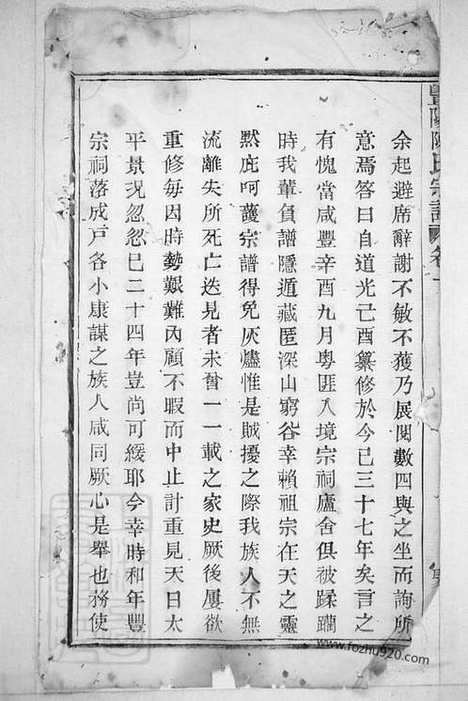 陳氏宗譜 卷一
余起避席辭謝不敏不獲乃展閱數四與之坐而詢所
意焉答曰自道光己酉纂修於今已三十七年矣言之
有愧當咸豐辛酉九月粵匪入境宗祠廬舍俱被蹂躪
時我輩負譜隱遁藏匿深山窮谷幸賴祖宗在天之靈
默庇呵護宗譜得免灰燼惟是賊擾之際我族人不無
流離失所死亡迭見者未嘗一一載之家史厥後屢欲
重修每因時勢艱難內顧不暇而中止計重見天日太
平景況忽忽已二十四年豈尚可緩耶今幸時和年豐
宗祠落成戶各小康謀之族人咸同厥心是舉也務使
www.fozhu920.com